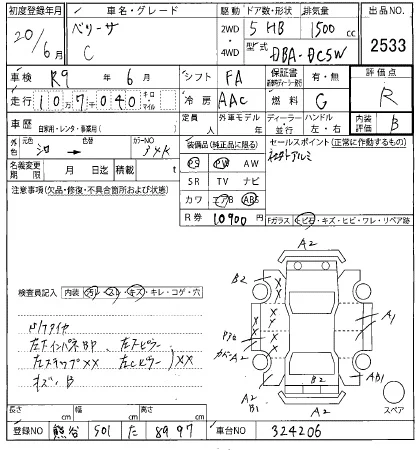 初度登録年月 車名・グレード 駆動 ドア数・形状 排気量 出品NO.
20/6月 ベリーサ C 2WD・4WD 5 HB 1500 cc 2533
型式 DBA-DC5W
車検 R9年6月 シフト FA 保証書 有・無 評価点 R
走行 107040 キロ・マイル 冷房 AAC 燃料 G
車歴 自家用・レンタ・事業用( ) 定員 人 外車モデル 年 ディーラー・並行 ハンドル 左・右 内装評価 B
外色 元色 シロ → 色替 カラーNO 34K
装備品(純正品に限る)
セールスポイント(正常に作動するもの)
名義変更期限 月 日迄 積載 t
PS PW AW
SR TV ナビ
カワ エアB ABS
社外アルミ
注意事項(欠品・修復・不具合箇所および状態)
R券 10900円
Fガラス トビ石・キズ・ヒビ・ワレ・リペア跡
検査員記入 内装 汚レ・スレ・キズ・キレ・コゲ・穴
左ステップXX 左Cピラー )XX
A2
B2
A1
A2
B2
AB1
A2
B1
A2
スペア
長さ cm 幅 cm 高さ cm
登録NO 熊谷 501 た 8997 車台NO 324206